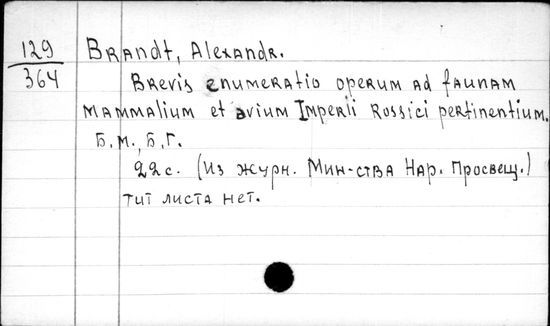 129
364
Brandt, Alexandr.
Brevis enumeratio operum ad faunam
mammalium et avium Imperii Rossici pertinentium.
Б.м., Б.г.
22 с. (Из журн. Мин-ства Нар. Просвещ.)
тит листа нет.